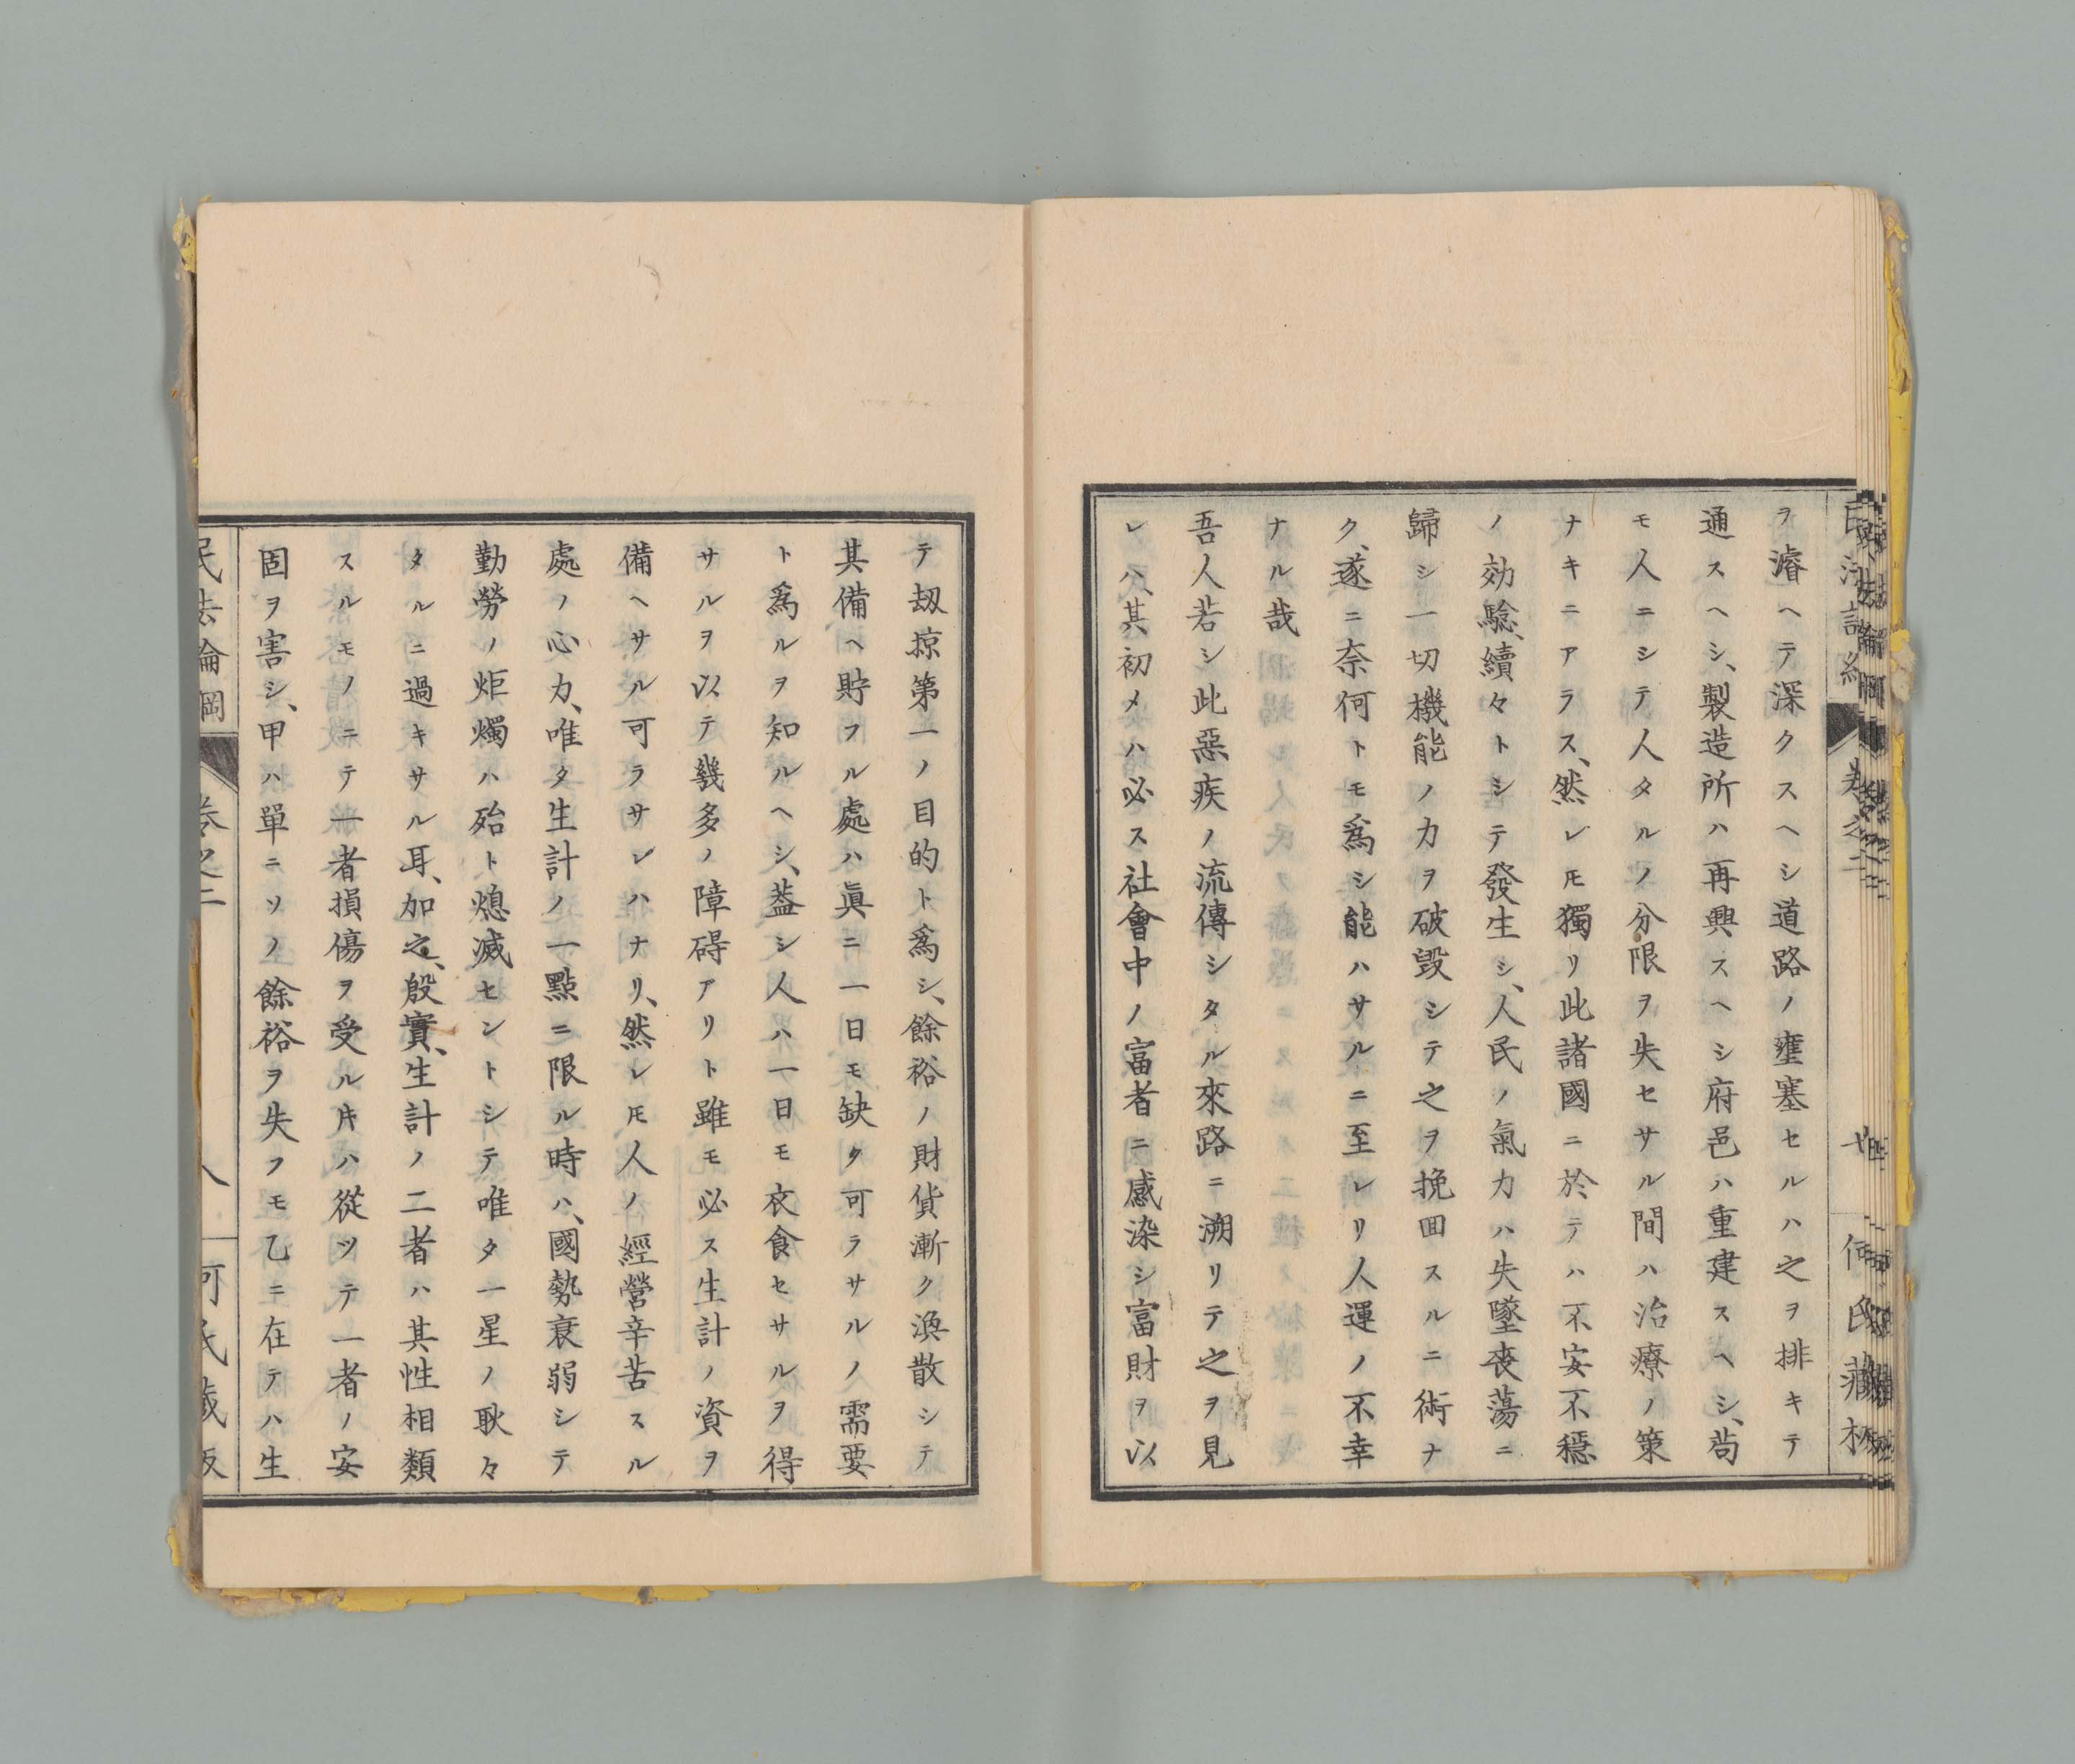 ヲ濬ヘテ深クスヘシ道路ノ壅塞セルハ之ヲ排キテ
通スヘシ、製造所ハ再興スヘシ府邑ハ重建スヘシ、苟
モ人ニシテ人タルノ分限ヲ失セサル間ハ治療ノ策
ナキニアラス、然レ𪜈獨リ此諸國ニ於テハ不安不穩
ノ効騐、續々トシテ發生シ、人民ノ氣力ハ失墜喪蕩ニ
歸シ一切機能ノ力ヲ破毀シテ之ヲ挽回スルニ術ナ
ク、遂ニ奈何トモ爲シ能ハサルニ至レリ人運ノ不幸
ナル哉
吾人若シ此惡疾ノ流傳シタル來路ニ溯リテ之ヲ見
レハ、其初メハ必ス社會中ノ富者ニ感染シ富財ヲ以
テ刧掠第一ノ目的ト爲シ、餘裕ノ財貨漸ク渙散シテ
其備ヘ貯フル處ハ眞ニ一日モ缺ク可ラサルノ需要
ト爲ルヲ知ルヘシ、葢シ人ハ一日モ衣食セサルヲ得
サルヲ以テ幾多ノ障碍アリト雖モ必ス生計ノ資ヲ
備ヘサル可ラサレハナリ、然レ𪜈人ノ經營辛苦スル
處ノ心力、唯タ生計ノ一點ニ限ル時ハ、國勢衰弱シテ
勤勞ノ炬燭ハ殆ト熄滅セントシテ唯タ一星ノ耿々
タルニ過キサル耳、加之、殷實、生計ノ二者ハ其性相類
スルモノニテ一者損傷ヲ受ル𪜈ハ從ツテ一者ノ安
固ヲ害シ、甲ハ單ニソノ餘裕ヲ失フモ乙ニ在テハ生
民法論綱
卷之二
八
何氏藏板